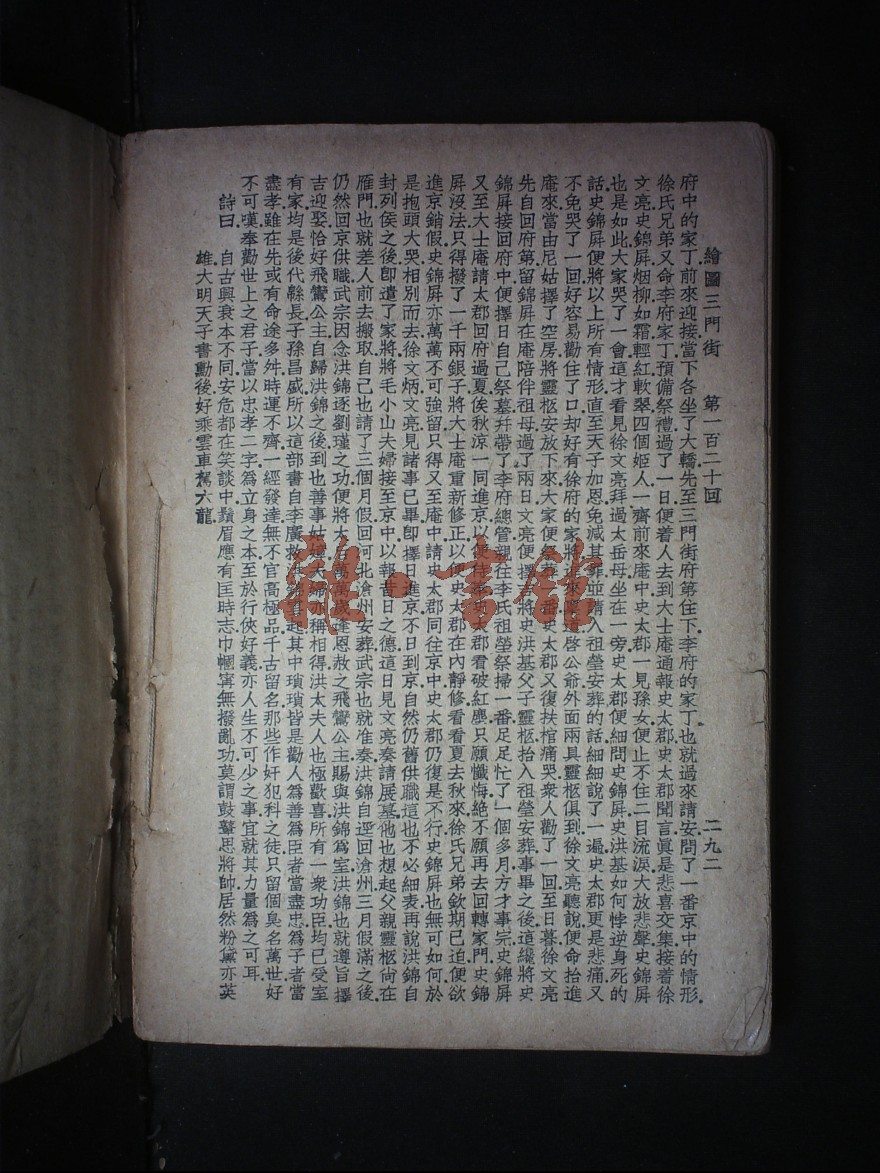 繪圖三門街 第一百二十回 二九二
府中的家丁前來迎接當下各坐了大轎先至三門街府第住下李府的家丁也就過來請安問了一番京中的情形
徐氏兄弟又命李府家丁預備祭禮過了一日便着人去到大士庵通報史太郡史太郡聞言眞是悲喜交集接着徐
文亮史錦屏烟柳如霜輕紅軟翠四個姬人一齊前來庵中史太郡一見孫女便止不住二目流淚大放悲聲史錦屏
也是如此大家哭了一會這才看見徐文亮拜過太岳母坐在一旁史太郡便細問史錦屏史洪基如何悖逆身死的
話史錦屏便將以上所有情形直至天子加恩免減其罪並請入祖塋安葬的話細細說了一遍史太郡更是悲痛又
不免哭了一回好容易勸住了口却好有徐府的家將進來稟道啓公爺外面兩具靈柩俱到徐文亮聽說便命抬進
庵來當由尼姑擇了空房將靈柩安放下來大家便祭奠一番史太郡又復扶棺痛哭衆人勸了一回至日暮徐文亮
先自回府第留錦屏在庵陪伴祖母過了兩日文亮便擇將史洪基父子靈柩抬入祖塋安葬事畢之後這纔將史
錦屏接回府中便擇日自己祭墓幷帶了李府總管親往李氏祖塋祭掃一番足足忙了一個多月方才事完史錦屏
又至大士庵請太郡回府過夏俟秋涼一同進京以便侍奉史太郡看破紅塵只願懺悔絶不願再去回轉家門史錦
屏沒法只得撥了一千兩銀子將大士庵重新修正以便史太郡在內靜修看看夏去秋來徐氏兄弟欽期已迫便欲
進京銷假史錦屏亦萬萬不可強留只得又至庵中請史太郡同往京中史太郡仍復是不行史錦屏也無可如何於
是抱頭大哭相別而去徐文炳文亮見諸事已畢卽擇日進京不日到京自然仍舊供職這也不必細表再說洪錦自
封列侯之後卽遣了家將將毛小山夫婦接至京中以報昔日之德這日見文亮奏請展墓他也想起父親靈柩尙在
雁門也就差人前去搬取自己也請了三個月假回河北滄州安葬武宗也就准奏洪錦自逕回滄州三月假滿之後
仍然回京供職武宗因念洪錦逐劉瑾之功便將太后萬萬歲逢恩赦之飛鸞公主賜與洪錦爲室洪錦也就遵旨擇
吉迎娶恰好飛鸞公主自歸洪錦之後到也善事姑嫜夫婦亦稱相得洪太夫人也極歡喜所有一衆功臣均已受室
有家均是後代緜長子孫昌盛所以這部書自李廣救洪錦起其中瑣瑣皆是勸人爲善爲臣者當盡忠爲子者當
盡孝雖在先或有命途多舛時運不齊一經發達無不官高極品千古留名那些作奸犯科之徒只留個臭名萬世好
不可嘆奉勸世上之君子當以忠孝二字爲立身之本至於行俠好義亦人生不可少之事宜就其力量爲之可耳
詩曰
自古興衰本不同安危都在笑談中鬚眉應有匡時志巾幗寧無撥亂功莫謂鼓鼙思將帥居然粉黛亦英
雄大明天子書勳後好乘雲車駕六龍
雜·書館